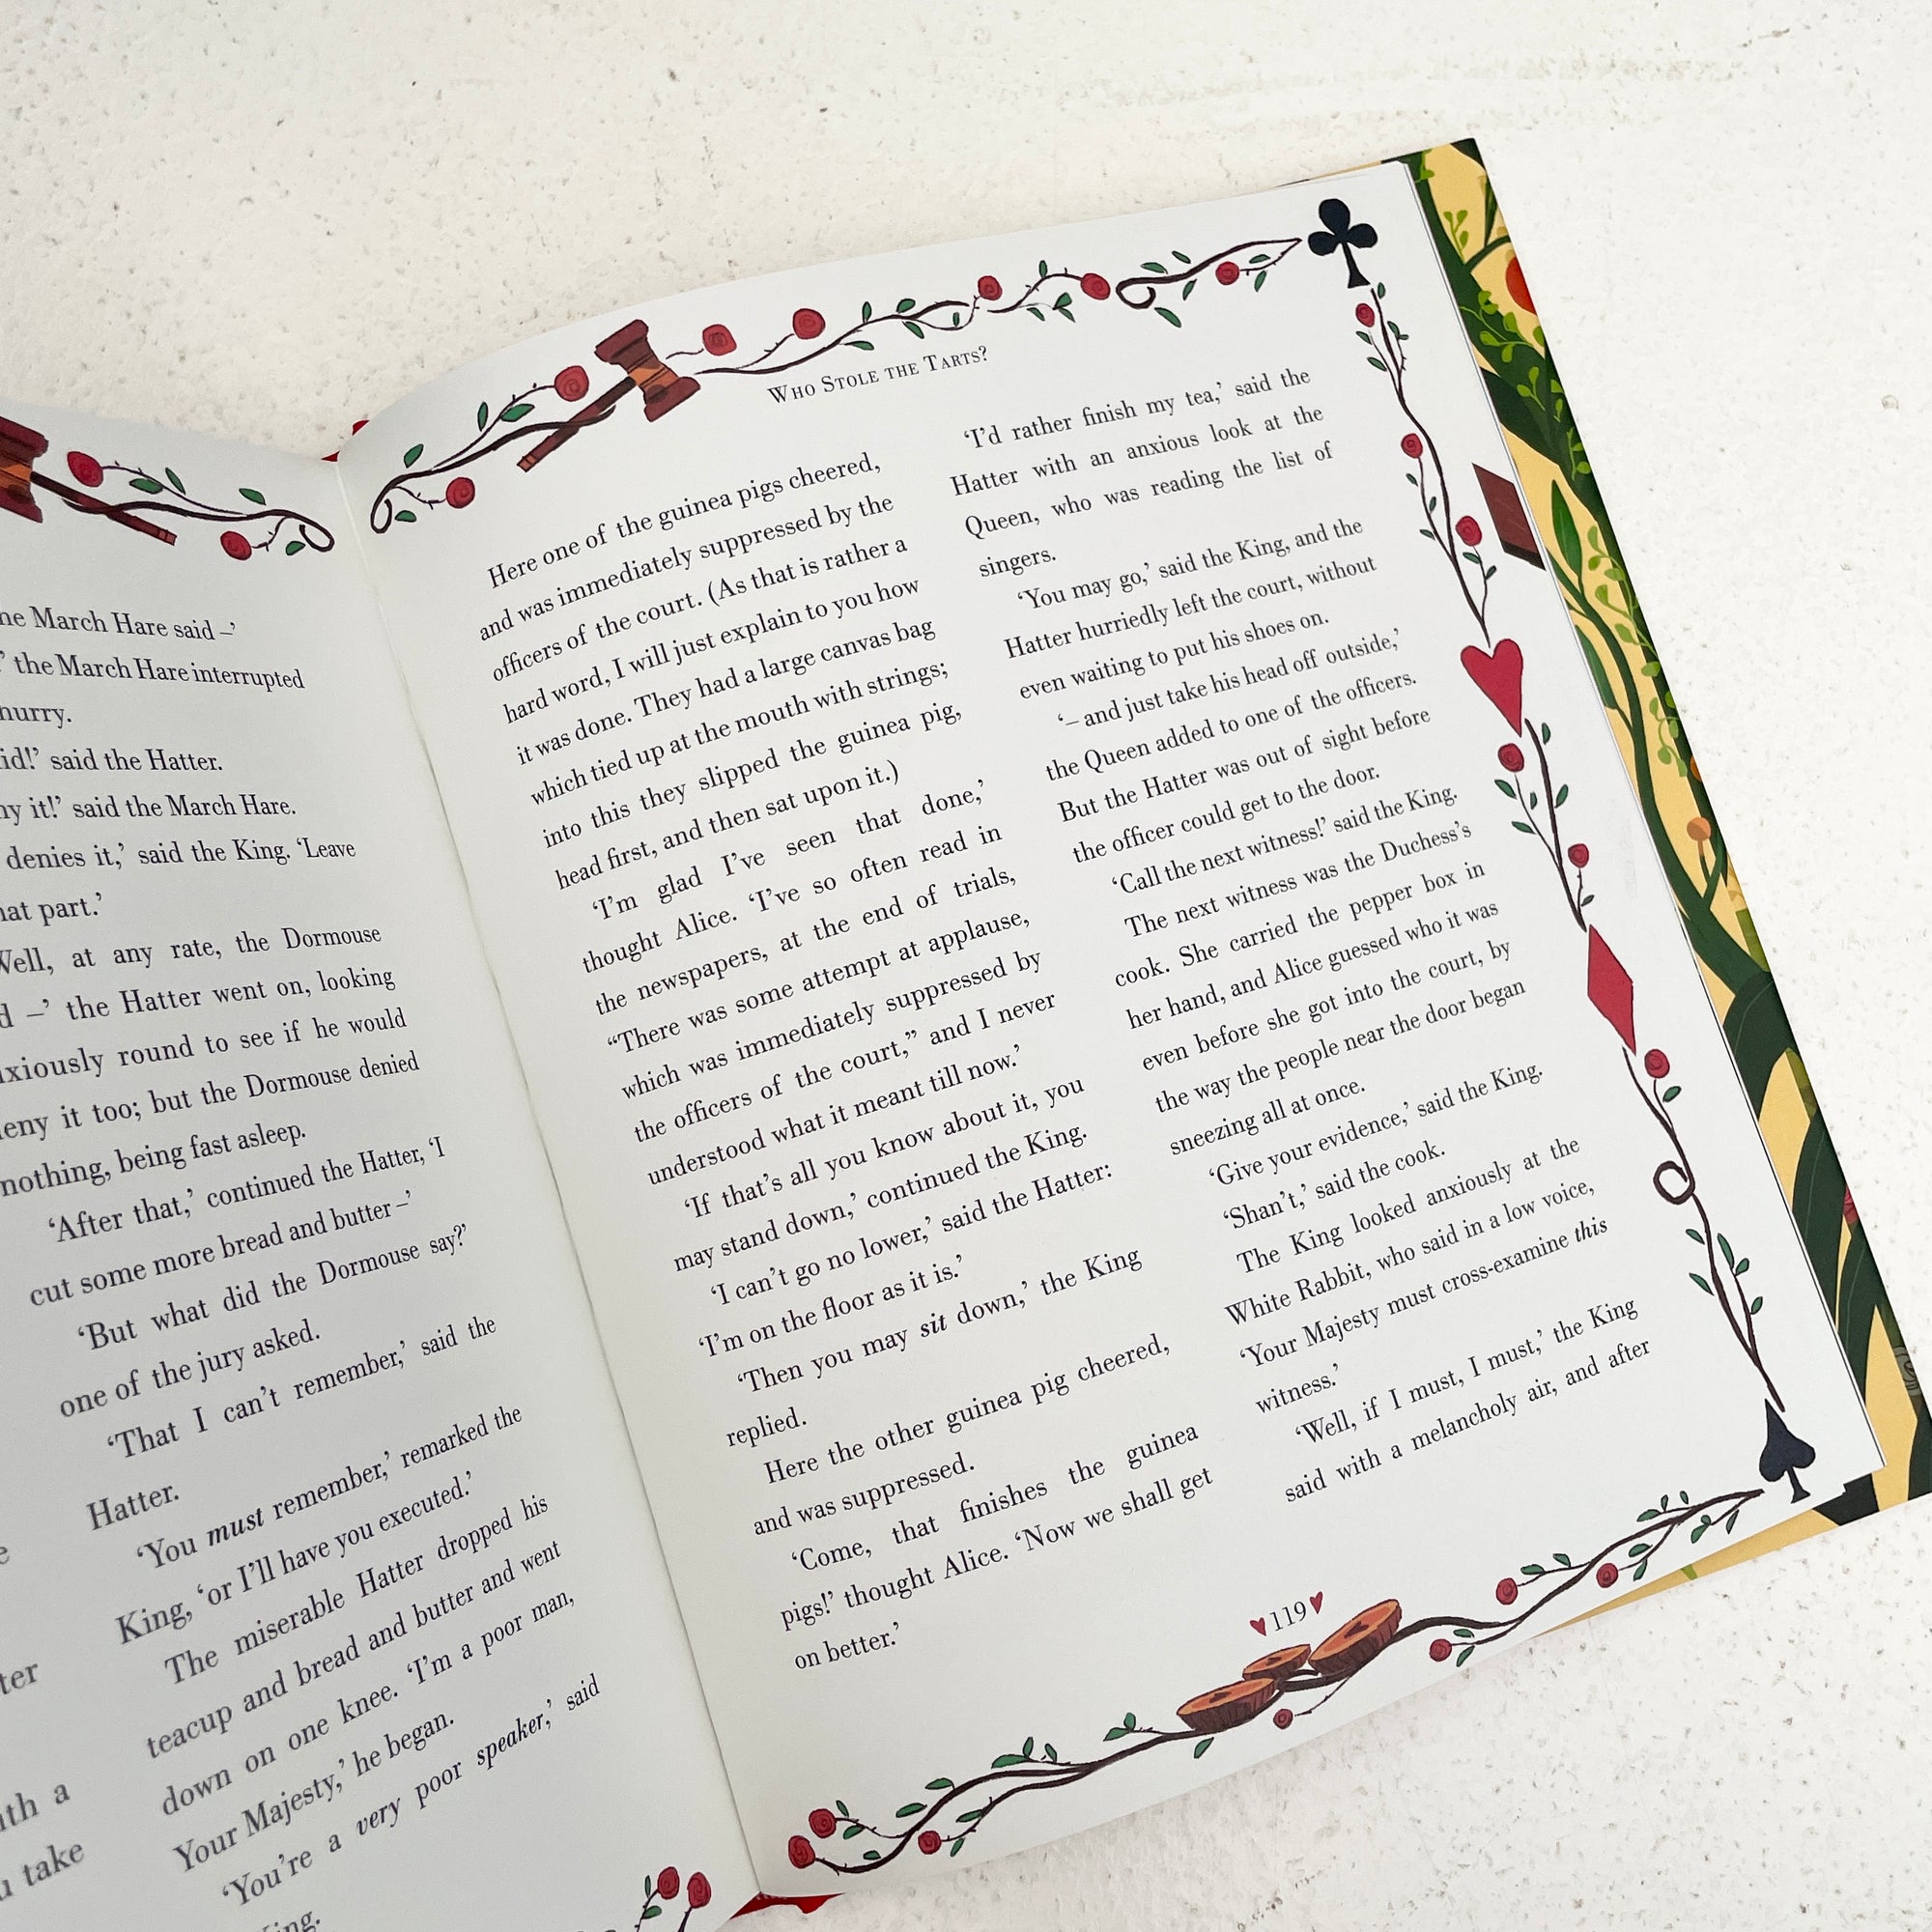 March Hare said –’
the March Hare interrupted
hurry.
said the Hatter.
it!’ said the March Hare.
denies it,’ said the King. ‘Leave
part.’
at any rate, the Dormouse
–’ the Hatter went on, looking
round to see if he would
it too; but the Dormouse denied
nothing, being fast asleep.
‘After that,’ continued the Hatter, ‘I
cut some more bread and butter –’
‘But what did the Dormouse say?’
one of the jury asked.
‘That I can’t remember,’ said the
Hatter.
‘You must remember,’ remarked the
King, ‘or I’ll have you executed.’
The miserable Hatter dropped his
teacup and bread and butter and went
down on one knee. ‘I’m a poor man,
Your Majesty,’ he began.
‘You’re a very poor speaker,’ said
a
take
Who Stole the Tarts?
Here one of the guinea pigs cheered,
and was immediately suppressed by the
officers of the court. (As that is rather a
hard word, I will just explain to you how
it was done. They had a large canvas bag
which tied up at the mouth with strings;
into this they slipped the guinea pig,
head first, and then sat upon it.)
‘I’m glad I’ve seen that done,’
thought Alice. ‘I’ve so often read in
the newspapers, at the end of trials,
“There was some attempt at applause,
which was immediately suppressed by
the officers of the court,” and I never
understood what it meant till now.’
‘If that’s all you know about it, you
may stand down,’ continued the King.
‘I can’t go no lower,’ said the Hatter:
‘I’m on the floor as it is.’
‘Then you may sit down,’ the King
replied.
Here the other guinea pig cheered,
and was suppressed.
‘Come, that finishes the guinea
pigs!’ thought Alice. ‘Now we shall get
on better.’
‘I’d rather finish my tea,’ said the
Hatter with an anxious look at the
Queen, who was reading the list of
singers.
‘You may go,’ said the King, and the
Hatter hurriedly left the court, without
even waiting to put his shoes on.
‘– and just take his head off outside,’
the Queen added to one of the officers.
But the Hatter was out of sight before
the officer could get to the door.
‘Call the next witness!’ said the King.
The next witness was the Duchess’s
cook. She carried the pepper box in
her hand, and Alice guessed who it was
even before she got into the court, by
the way the people near the door began
sneezing all at once.
‘Give your evidence,’ said the King.
‘Shan’t,’ said the cook.
The King looked anxiously at the
White Rabbit, who said in a low voice,
‘Your Majesty must cross-examine this
witness.’
‘Well, if I must, I must,’ the King
said with a melancholy air, and after
119